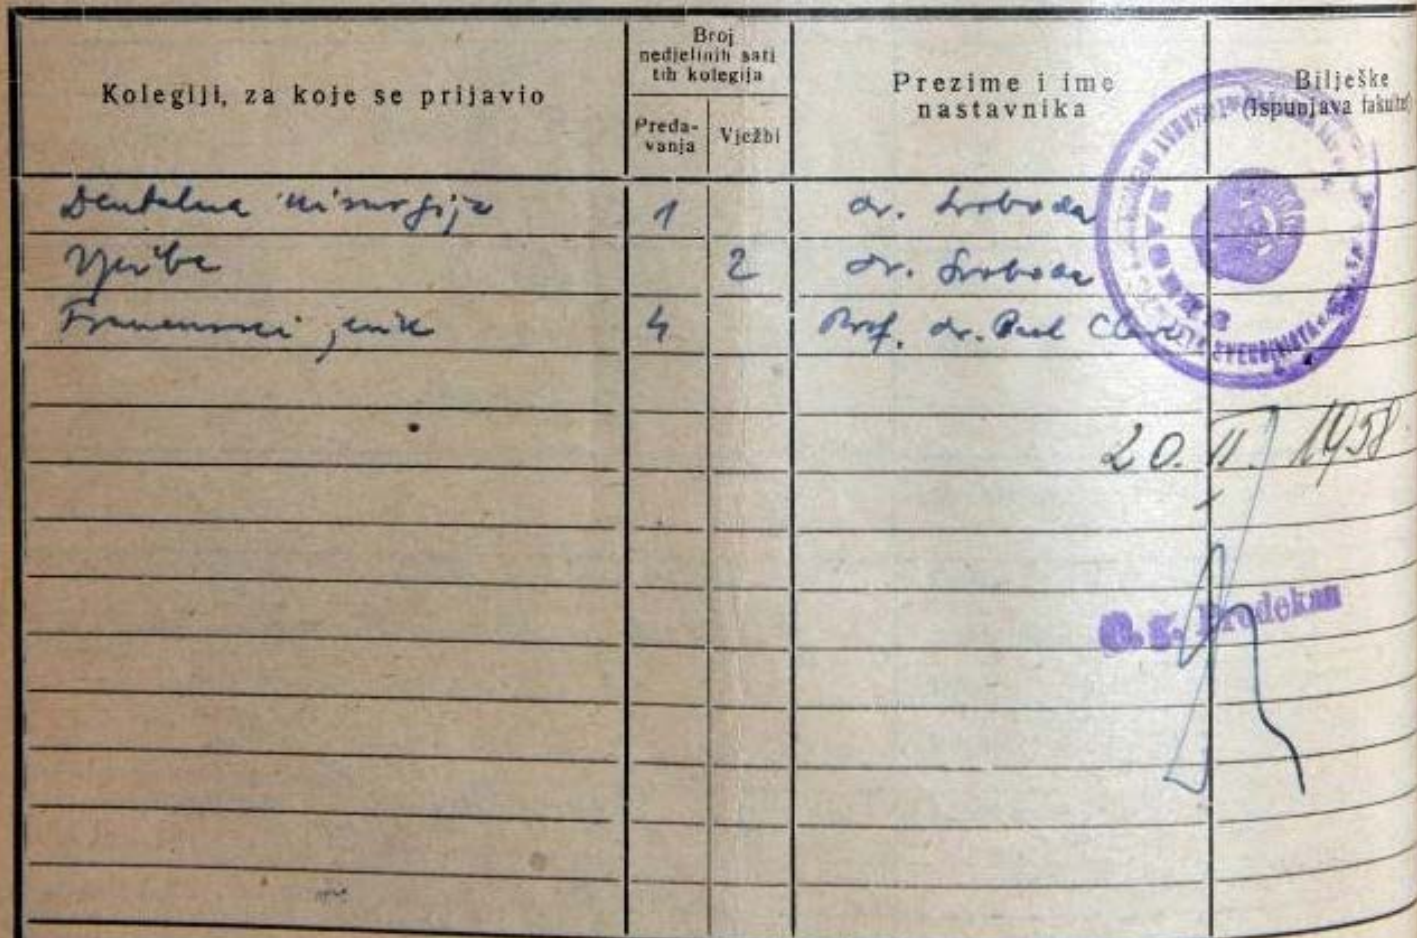 Kolegiji, za koje se prijavio
Broj
nedjeljnih sati
tih kolegija
Preda-
vanja
Vježbi
Prezime i ime
nastavnika
Bilješke
(Ispunjava fakultet)
Dentalna kirurgija 1 dr. Svoboda
Vježbe 2 dr. Svoboda
Francuski jezik 4 Prof. dr. Paul
SVEUČILIŠTA
20. II. 1958.
Prodekan